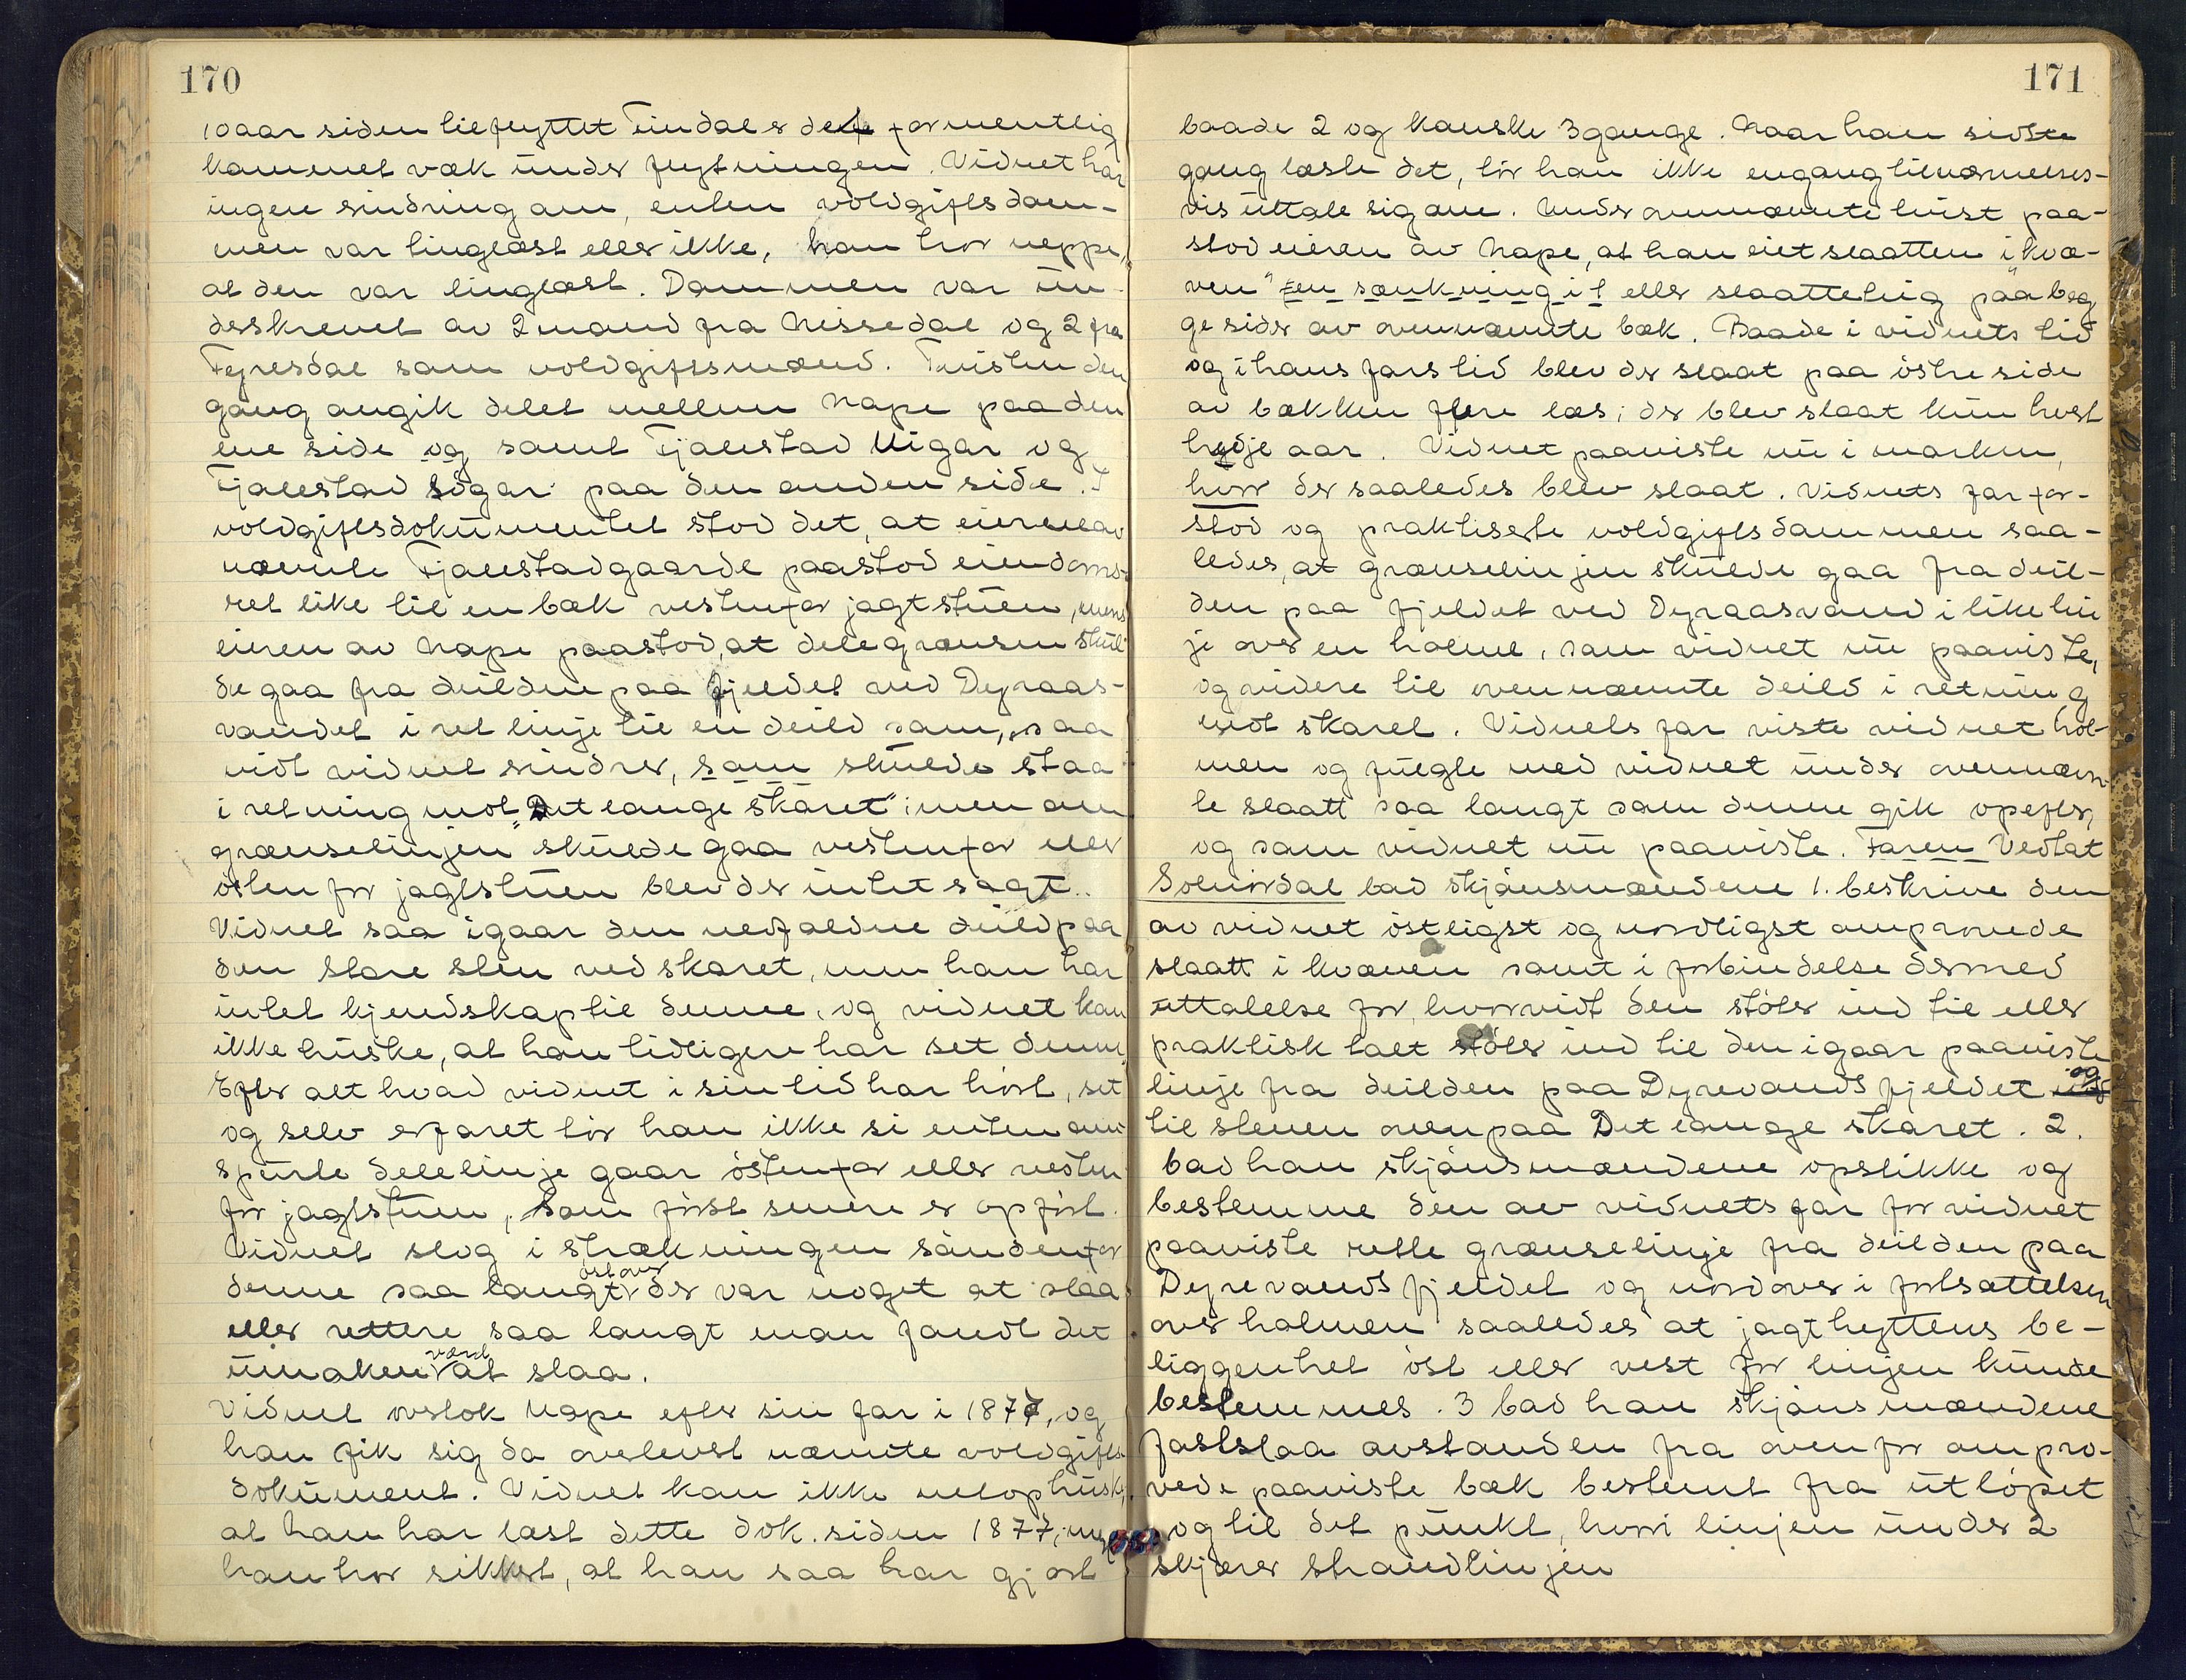 170
10 aar siden tilflyttet Eindal er det formentlig
kommet væk under flytningen. Vidnet har
ingen erindring om, enten voldgiftsdom-
men var tinglæst eller ikke, han tror neppe,
at den var tinglæst. Dommen var un-
derskrevet av 2 mænd fra Nissedal og 2 fra
Fyresdal som voldgiftsmænd. Tvisten den
gang angik delet mellem Nape paa den
ene side og samt Fjalestad Uigar og
Fjalestad Sigar paa den anden side. I
voldgiftsdokumentet stod det, at eierne av
nævnte Fjalestadgaarde paastod eiendoms-
ret like til en bæk vestenfor jagtstuen, mens
eieren av Nape paastod, at delegrænsen skul-
de gaa fra deilden paa fjeldet ved Dyraas-
vandet i ret linje til en deild som, saa
vidt vidnet erindrer, som skulde staa
i retning mot "Det lange skaret"; men om
grænselinjen skulde gaa vestenfor eller
østen for jagtstuen blev der intet sagt..
Vidnet saa igaar den nedfaldne deild paa
den store sten ved skaret, men han har
intet kjendskap til denne, og vidnet kan
ikke huske, at han tidligere har set denne.
Efter alt hvad vidnet i sin tid har hørt, set
og selv erfaret tør han ikke si enten om-
spurte delelinje gaar østenfor eller vesten
for jagtstuen, som først senere er opført.
Vidnet slog i strækningen søndenfor
denne saa langt østover der var noget at slaa
eller rettere saa langt man fandt det
umaken værd at slaa.
Vidnet overtok Nape efter sin far i 1877, og
han fik sig da overlevert nævnte voldgifts-
dokument. Vidnet kan ikke netop huske,
at han har læst dette dok. siden 1877; men
han tror sikkert, at han saa har gjort
171
baade 2 og kanske 3 gange. Naar han sidste
gang læste det, tør han ikke engang tilnærmelses-
vis uttale sig om. Under omnævnte tvist paa-
stod eieren av Nape, at han eiet slaatten i "kvæ-
ven" "en sænkning i" eller slaatteteig paa beg
ge sider av ovennævnte bæk. Baade i vidnets tid
og i hans fars tid blev der slaat paa østre side
av bækken flere læs; der blev slaat kun hvert
tredje aar. Vidnet paaviste nu i marken,
hvor der saaledes blev slaat. Vidnets far for-
stod og praktiserte voldgiftsdommen saa-
ledes, at grænselinjen skulde gaa fra deil-
den paa fjeldet ved Dyraasvand i like lin
je over en holme, som vidnet nu paaviste,
og videre til ovennævnte deild i retning
mot skaret. Vidnets far viste vidnet hol-
men og fulgte med vidnet under ovennævn-
te slaatt saa langt som denne gik opefter,
og som vidnet nu paaviste. Faren Vedtat
Solvørdal bad skjønsmændene 1. beskrive den
av vidnet østligst og nordligst omprovede
slaatt i kvæven samt i forbindelse dermed
uttalelse for, hvorvidt den støter ind til eller
praktisk talt støter ind til den igaar paaviste
linje fra deilden paa Dyrevandsfjeldet og
til stenen ovenpaa Det lange skaret. 2.
bad han skjønsmændene opstikke og
bestemme den av vidnets far for vidnet
paaviste rette grænselinje fra deilden paa
Dyrevandsfjeldet og nordover i fortsættelsen
over holmen saaledes at jagthyttens be-
liggenhet øst eller vest for linjen kunde
bestemmes. 3 bad han skjønsmændene
fastslaa avstanden fra ovenfor ompro-
vede paaviste bæk bestemt fra utløpet
og til det punkt, hvori linjen under 2
skjærer strandlinjen